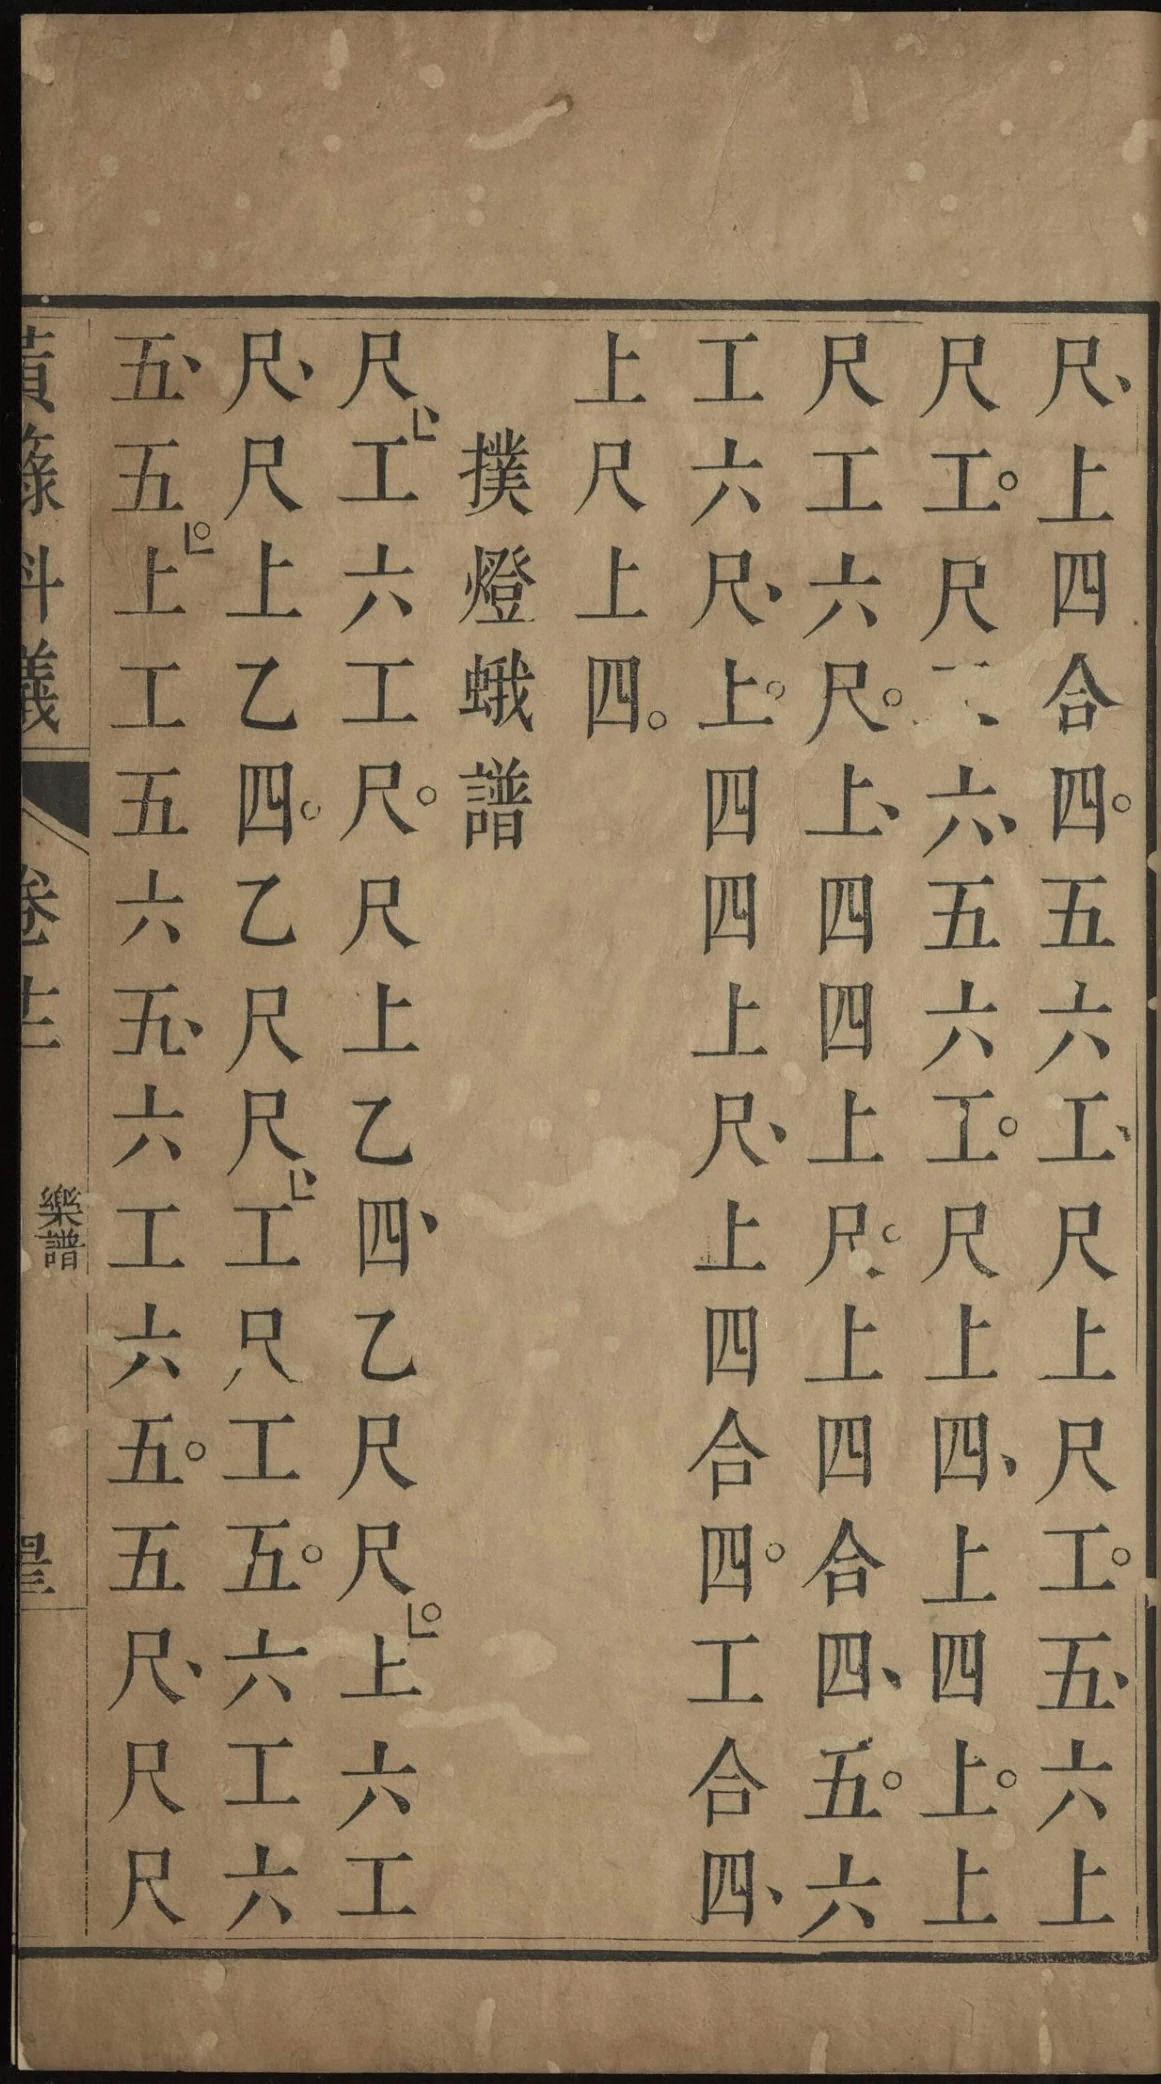 尺、上四合四。五六工、尺上尺工。五、六上
尺工。尺、六、五六工。尺上四、上四上。上
尺工六尺。上、四四上尺。上四合四、五。六
工六尺、上。四四上尺、上四合四。工合四、
上尺上四。
撲燈蛾譜
尺、工六工尺。尺上乙四、乙尺尺。上六工
尺、尺上乙四。乙尺尺、工尺工五。六工六
五、五。上工五六五、六工六五。五尺、尺尺
黃籙科儀 卷十二 樂譜